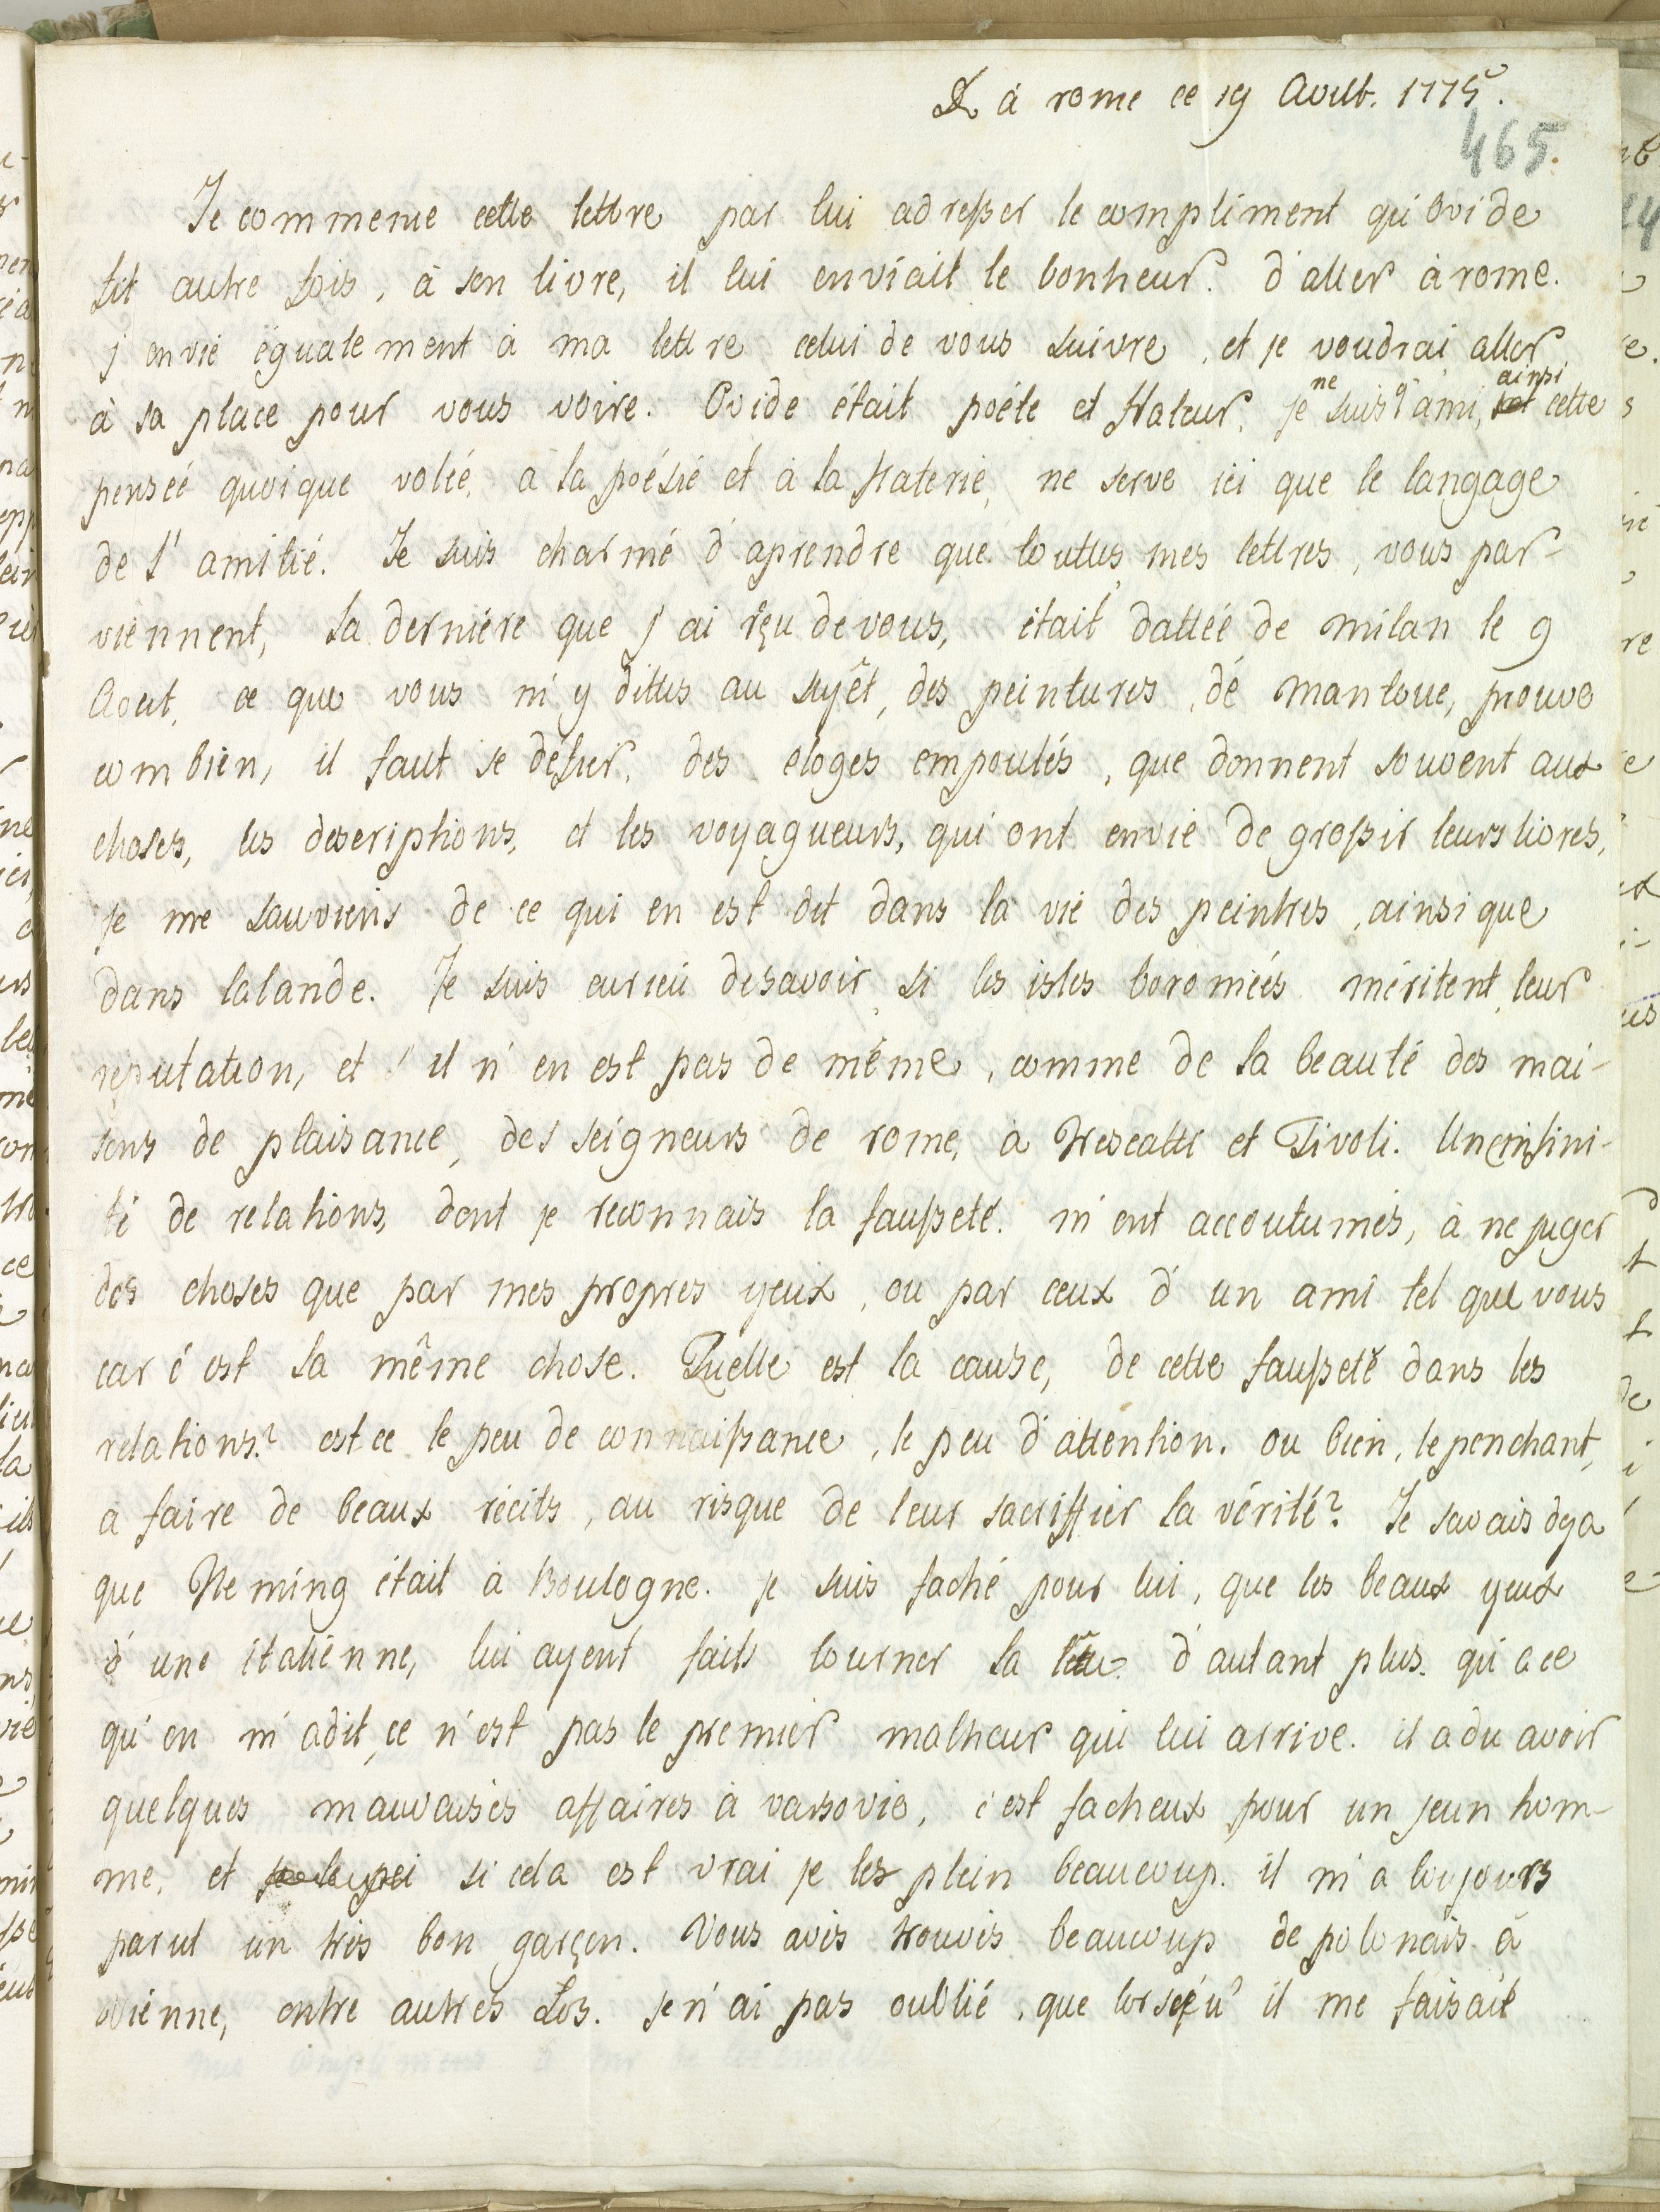 à rome ce 19 Aoust. 1775.
465.
Je commence cette lettre par lui adresser le compliment qu'Ovide
fit autre fois, à son livre, il lui enviait le bonheur d'aller à rome.
j'envie également à ma lettre celui de vous suivre, et je voudrai aller
à sa place pour vous voire. Ovide était poéte et flateur, je ne suis qu'ami, ainsi cette
pensée quoique volée, à la poésie et à la flaterie, ne serve ici que le langage
de l'amitié. Je suis charmé d'aprendre que touttes mes lettres, vous par-
viennent, la derniére que j'ai rçu de vous, était dattée de milan le 9
Aout, ce que vous m'y dittes au sujêt, des peintures, de mantoue, prouve
combien, il faut se défier, des eloges empoulés, que donnent souvent aux
choses, les descriptions, et les voyagueurs, qui ont envie de grossir leurs livres,
je me souviens de ce qui en est dit dans la vie des peintres, ainsi que
dans lalande. Je suis curieú de savoir, si les isles boromées méritent leur
reputation, et s'il n'en est pas de même, comme de la beauté des mai-
sons de plaisance, des seigneurs de rome, à frescatti et Tivoli. Une infini-
té de relations, dont je reconnais la fausseté. m'ont accoutumés, à ne juger
des choses que par mes propres yeux, ou par ceux d'un ami tel que vous
car c'est la même chose. Quelle est la cause, de cette fausseté dans les
relations? est ce le peu de connaissance, le peu d'attention. ou bien, le penchant,
a faire de beaux récits, au risque de leur sacriffier la vérité? Je savais deja
que fleming était à Boulogne. je suis faché pour lui, que les beaux yeux
d'une italienne, lui ayent faits tourner la tête. d'autant plus. qu'a ce
qu'on m'a dit, ce n'est pas le premier malheur qui lui arrive. il a du avoir
quelques mauvaises affaires à varsovie, c'est facheux pour un jeun hom-
me, et si cela est vrai je les plein beaucoup. il m'a toujours
parut un trés bon garçon. Vous avés trouvés beaucoup de polonais à
vienne, entre autres Los. je n'ai pas oublié, que lorsequ'il me faisait